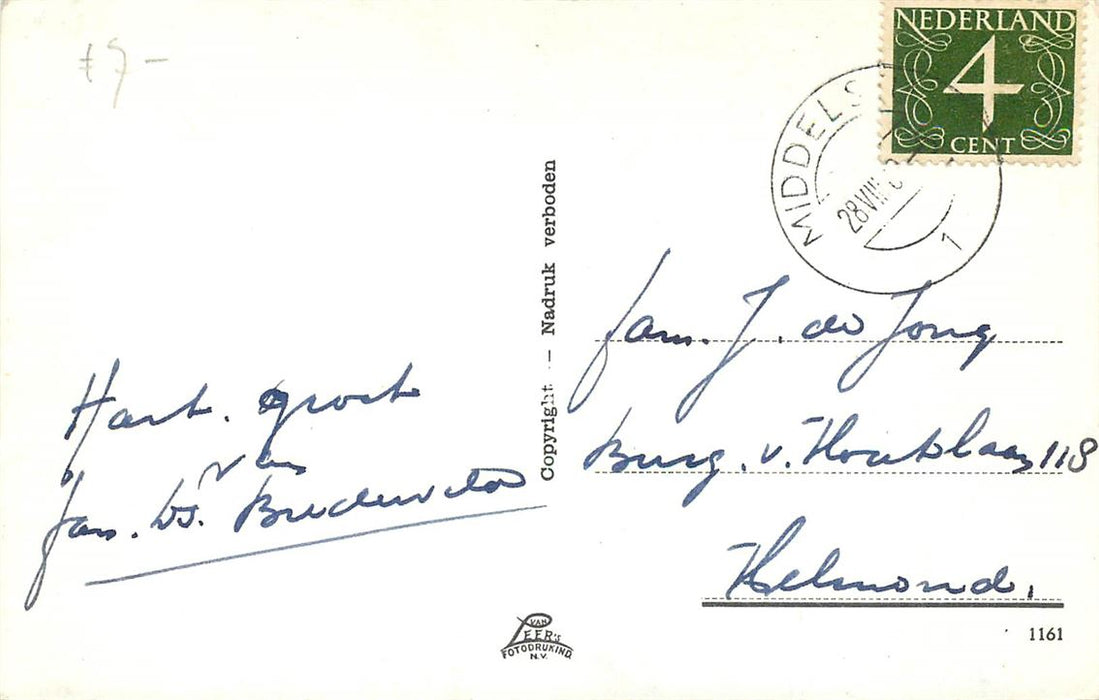 f 7 -
NEDERLAND
4
CENT
MIDDELS
28 VIII
1
Copyright - Nadruk verboden
Fam. J. de Jong
Burg. v. Houtlaan 118
Helmond.
Hart. groet
van
Fam. Ds.
VAN
LEER'S
FOTODRUKIND.
N.V.
1161